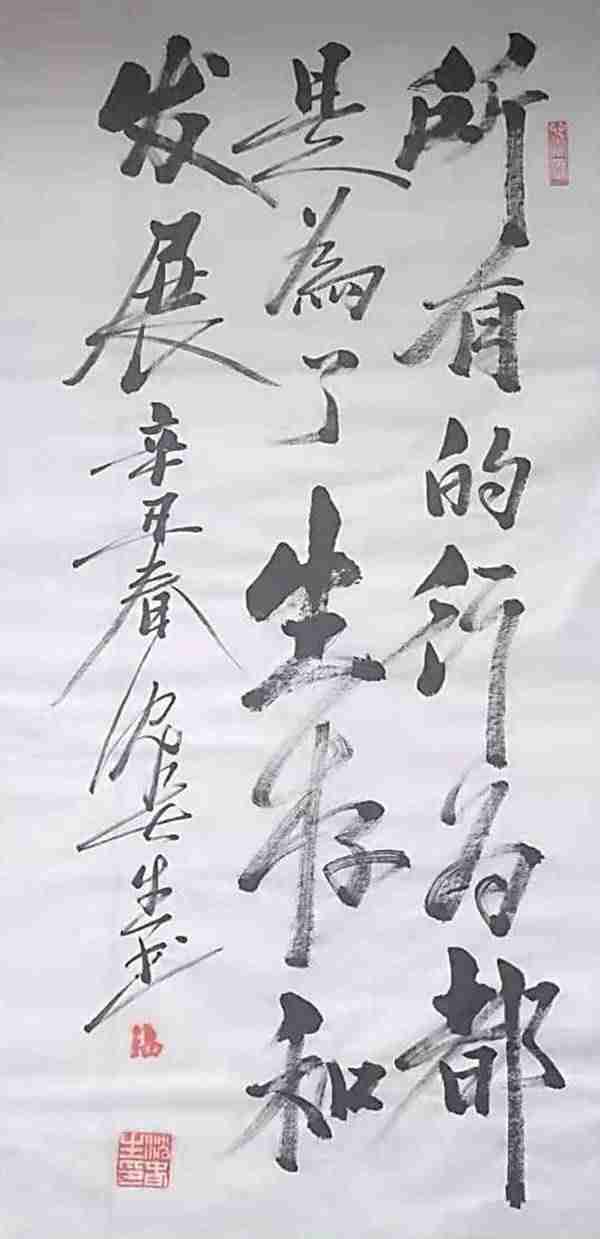 所有的行为都
是為了生存和
发展
辛丑春